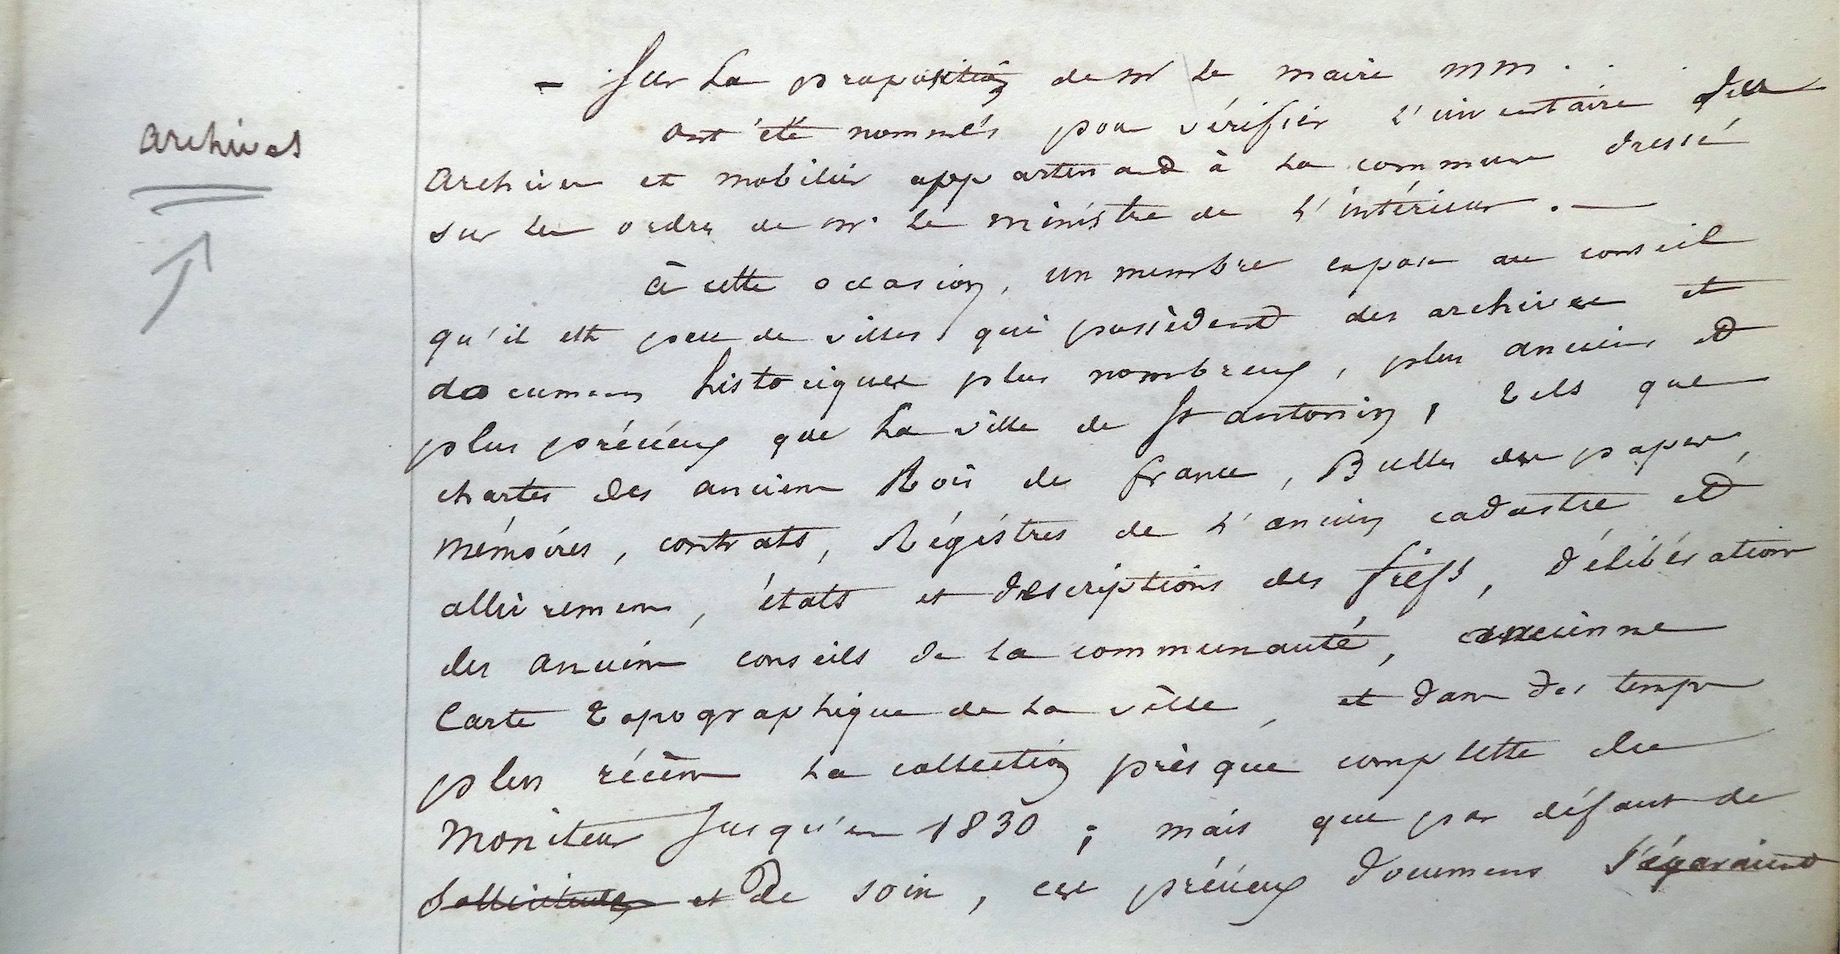 archives
- Sur la proposition de Mr le maire MM. . .
ont été nommés pour vérifier l'inventaire des
archives et mobilier appartenant à la commune dressé
sur les ordres de Mr le ministre de l'intérieur. —
à cette occasion, un membre expose au conseil
qu'il est peu de villes qui possèdent des archives et
documens historiques plus nombreux, plus anciens et
plus précieux que la ville de St antonin, tels que
chartes des anciens Rois de france, Bulles des papes,
mémoires, contrats, Régistres de l'ancien cadastre et
allivremens, états et descriptions des fiefs, délibérations
des anciens conseils de la communauté, ancienne
Carte topographique de la ville, et dans des temps
plus récens la collection présque complette du
Moniteur Jusqu'en 1830 ; mais que par défaut de
sollicitude et de soin, ces précieux documens s'égaraient